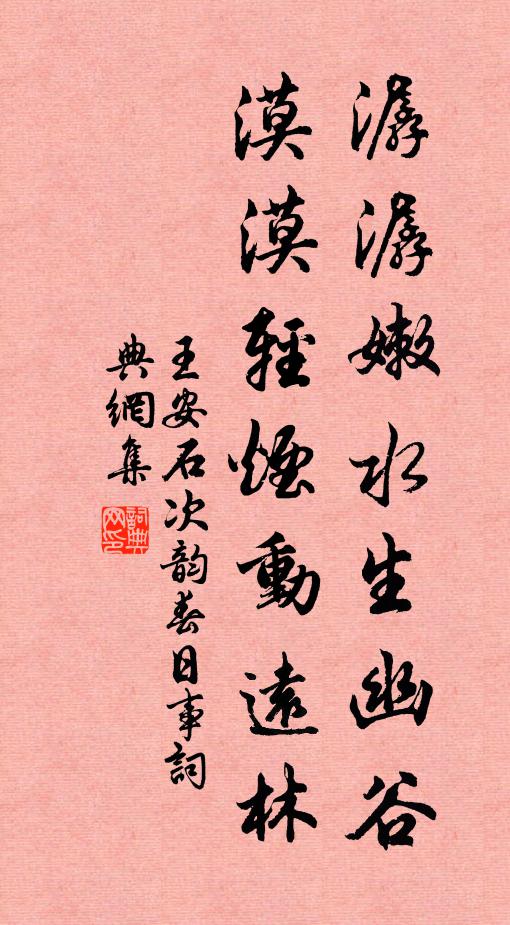 潺潺嫩水生幽谷
漠漠輕煙動遠林
王安石次韵春日事詞
典網集
詞典
网印